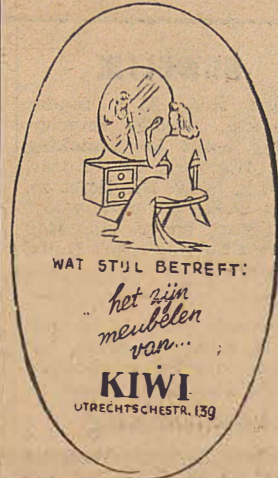 WAT STIJL BETREFT:
het zijn
meubelen
van...
KIWI
UTRECHTSCHESTR. 139